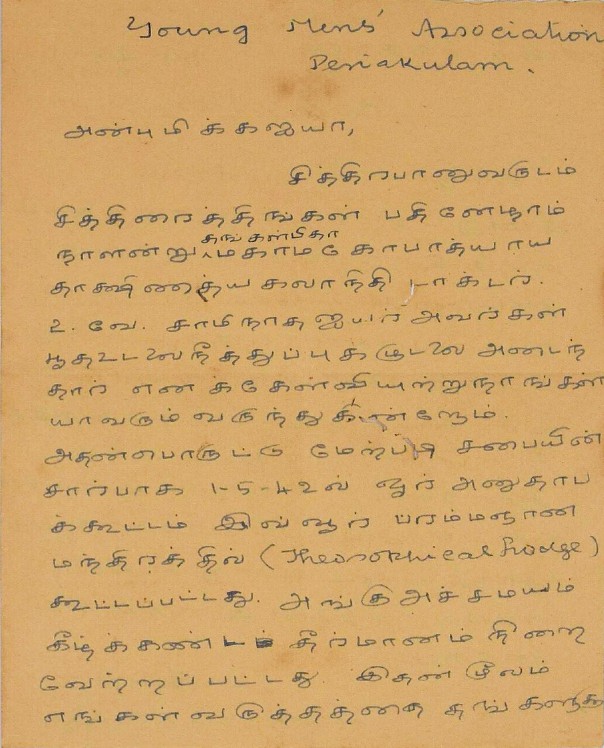 Young Mens' Association
Periakulam.
அன்புமிக்கஐயா,
சித்திரபானுவருடம்
சித்திரைத்திங்கள் பதினேழாம்
நாளன்று தங்கள்பிதா மகாமகோபாத்யாய
தாக்ஷிணத்ய கலாநிதி டாக்டர்.
உ. வே. சாமிநாதஐயர் அவர்கள்
பூதஉடலைநீத்துப்புகழுடலை அடைந்
தார் எனக்கேள்வியுற்றுநாங்கள்
யாவரும் வருந்துகின்றோம்.
அதன்பொருட்டு மேற்படி சபையின்
சார்பாக 1-5-42ல் ஓர் அனுதாப
க்கூட்டம் இவ்வூர் ப்ரம்மஞான
மந்திரத்தில் (Theosophical Lodge)
கூட்டப்பட்டது. அங்குஅச்சமயம்
கீழ்க்கண்ட தீர்மானம் நிறை
வேற்றப்பட்டது. இதன் மூலம்
எங்கள்வருத்தத்தை தங்களுக்கு